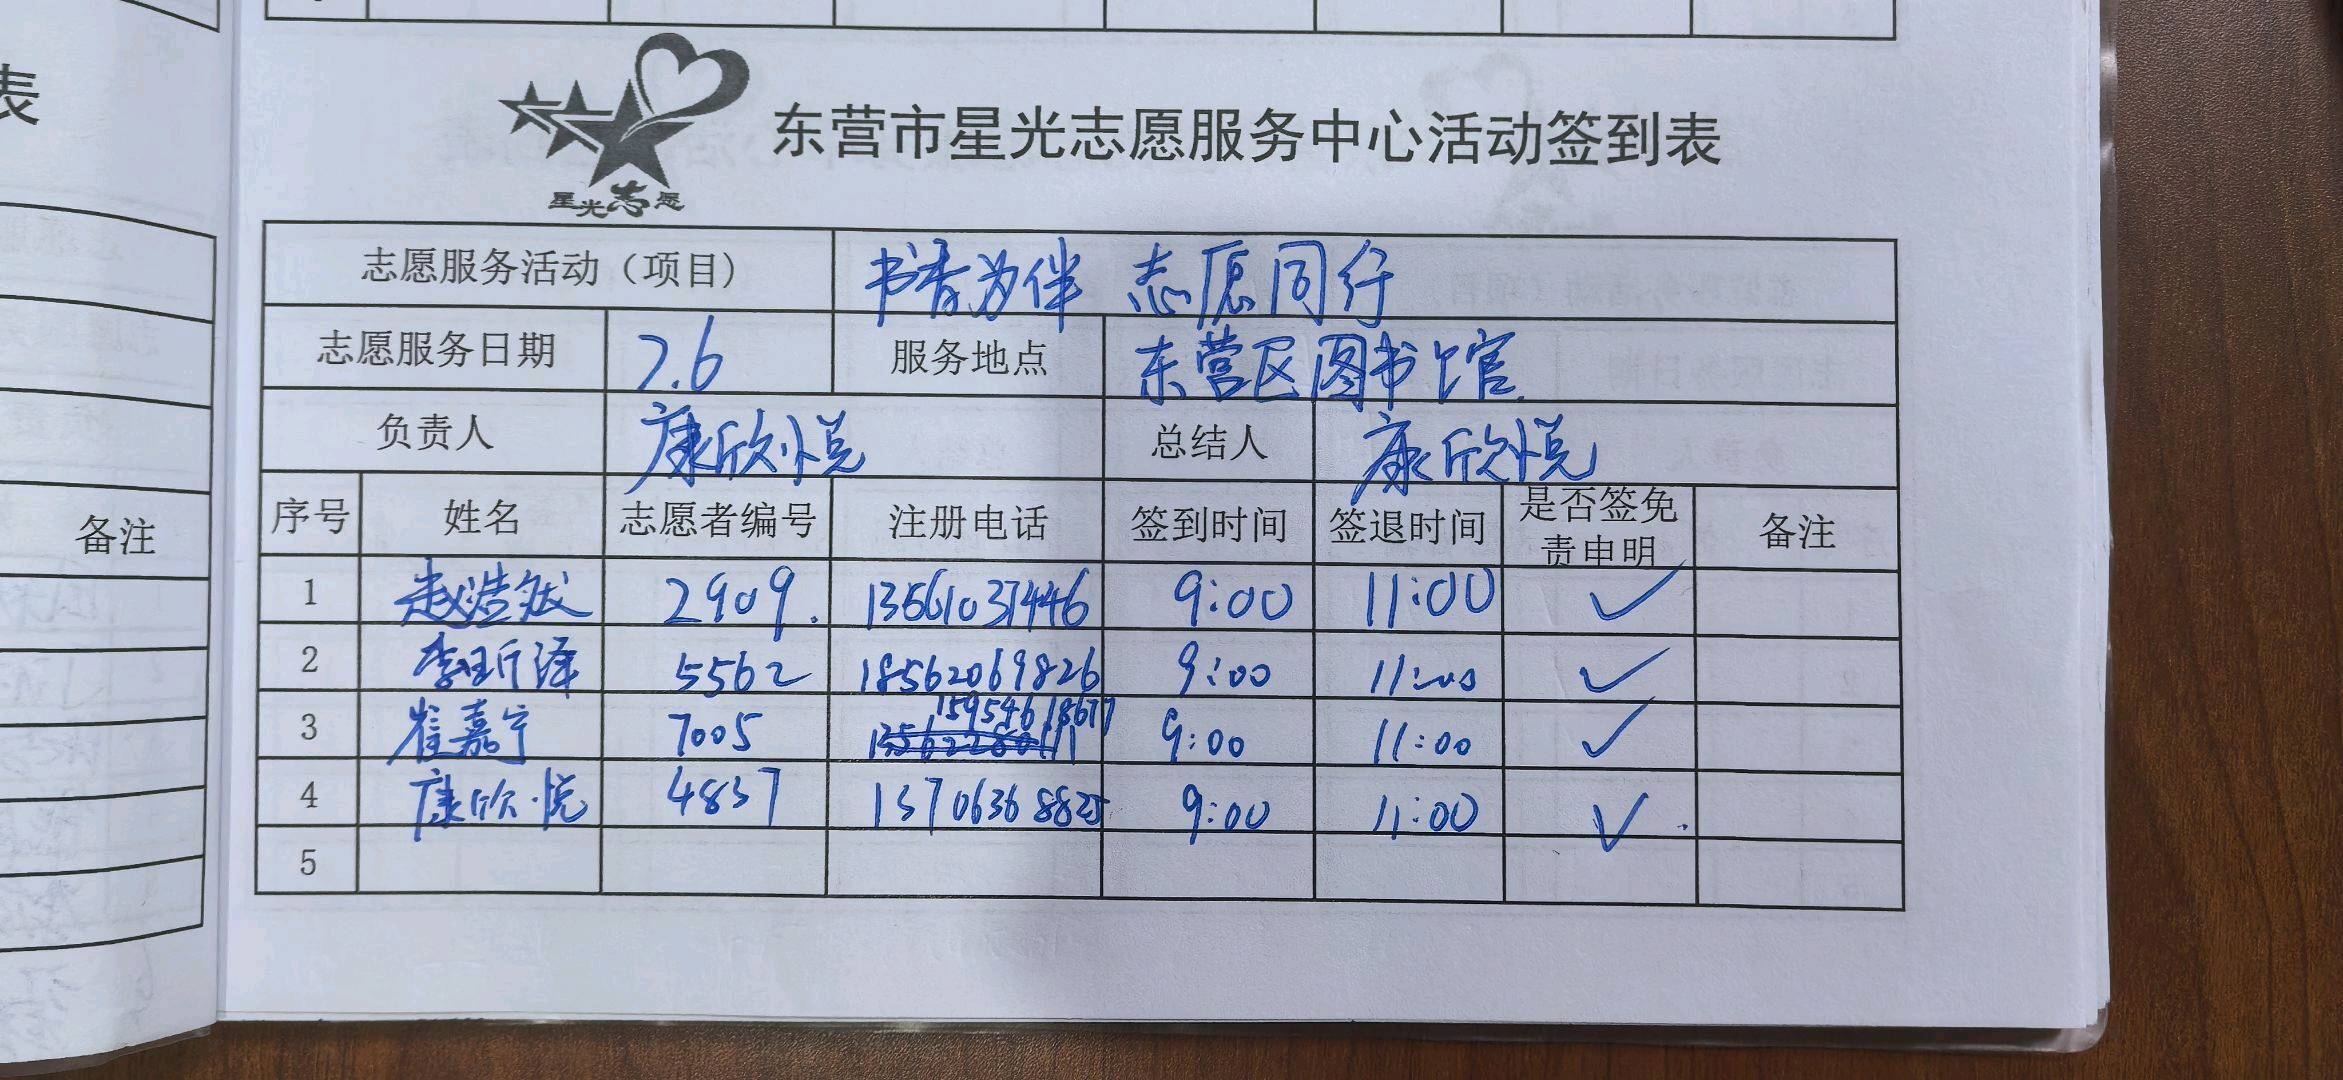 表
备注
星光志愿
东营市星光志愿服务中心活动签到表
志愿服务活动（项目） 书香为伴 志愿同行
志愿服务日期 7.6 服务地点 东营区图书馆
负责人 康欣悦 总结人 康欣悦
序号 姓名 志愿者编号 注册电话 签到时间 签退时间 是否签免责申明 备注
1 赵浩 2909. 9:00 11:00 ✓
2 李昕泽 5562 18562069826 9:00 11:00 ✓
3 崔嘉宁 7005 15954618677 9:00 11:00 ✓
4 康欣悦 4837 13706368825 9:00 11:00 ✓
5